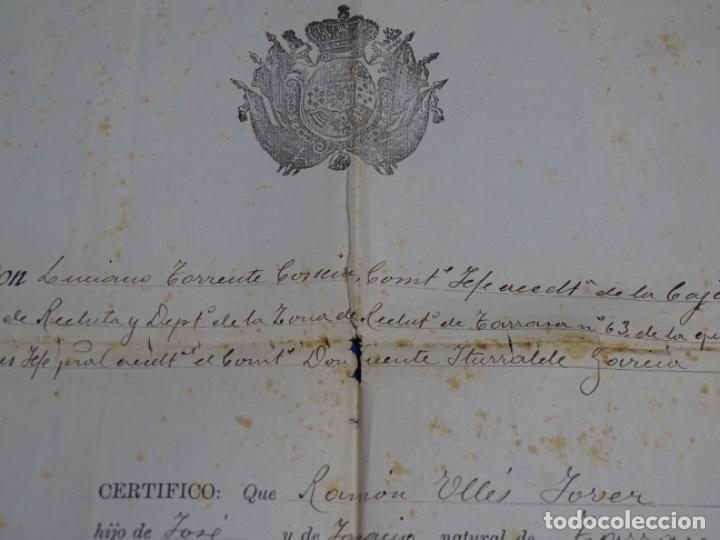 on Luciano Torrente Cossin, Comt.e Jefe accdt.l de la Caj
de Recluta y Dept.o de la Zona de Reclut.o de Tarrasa n.o 63, de la qu
es Jefe pral accdt.al el Comt.e Don Vicente Iturralde Garcia
CERTIFICO: Que Ramón Ullés Jover
hijo de José y de Ignacia natural de Tarrasa
todocoleccion
todocoleccion.net